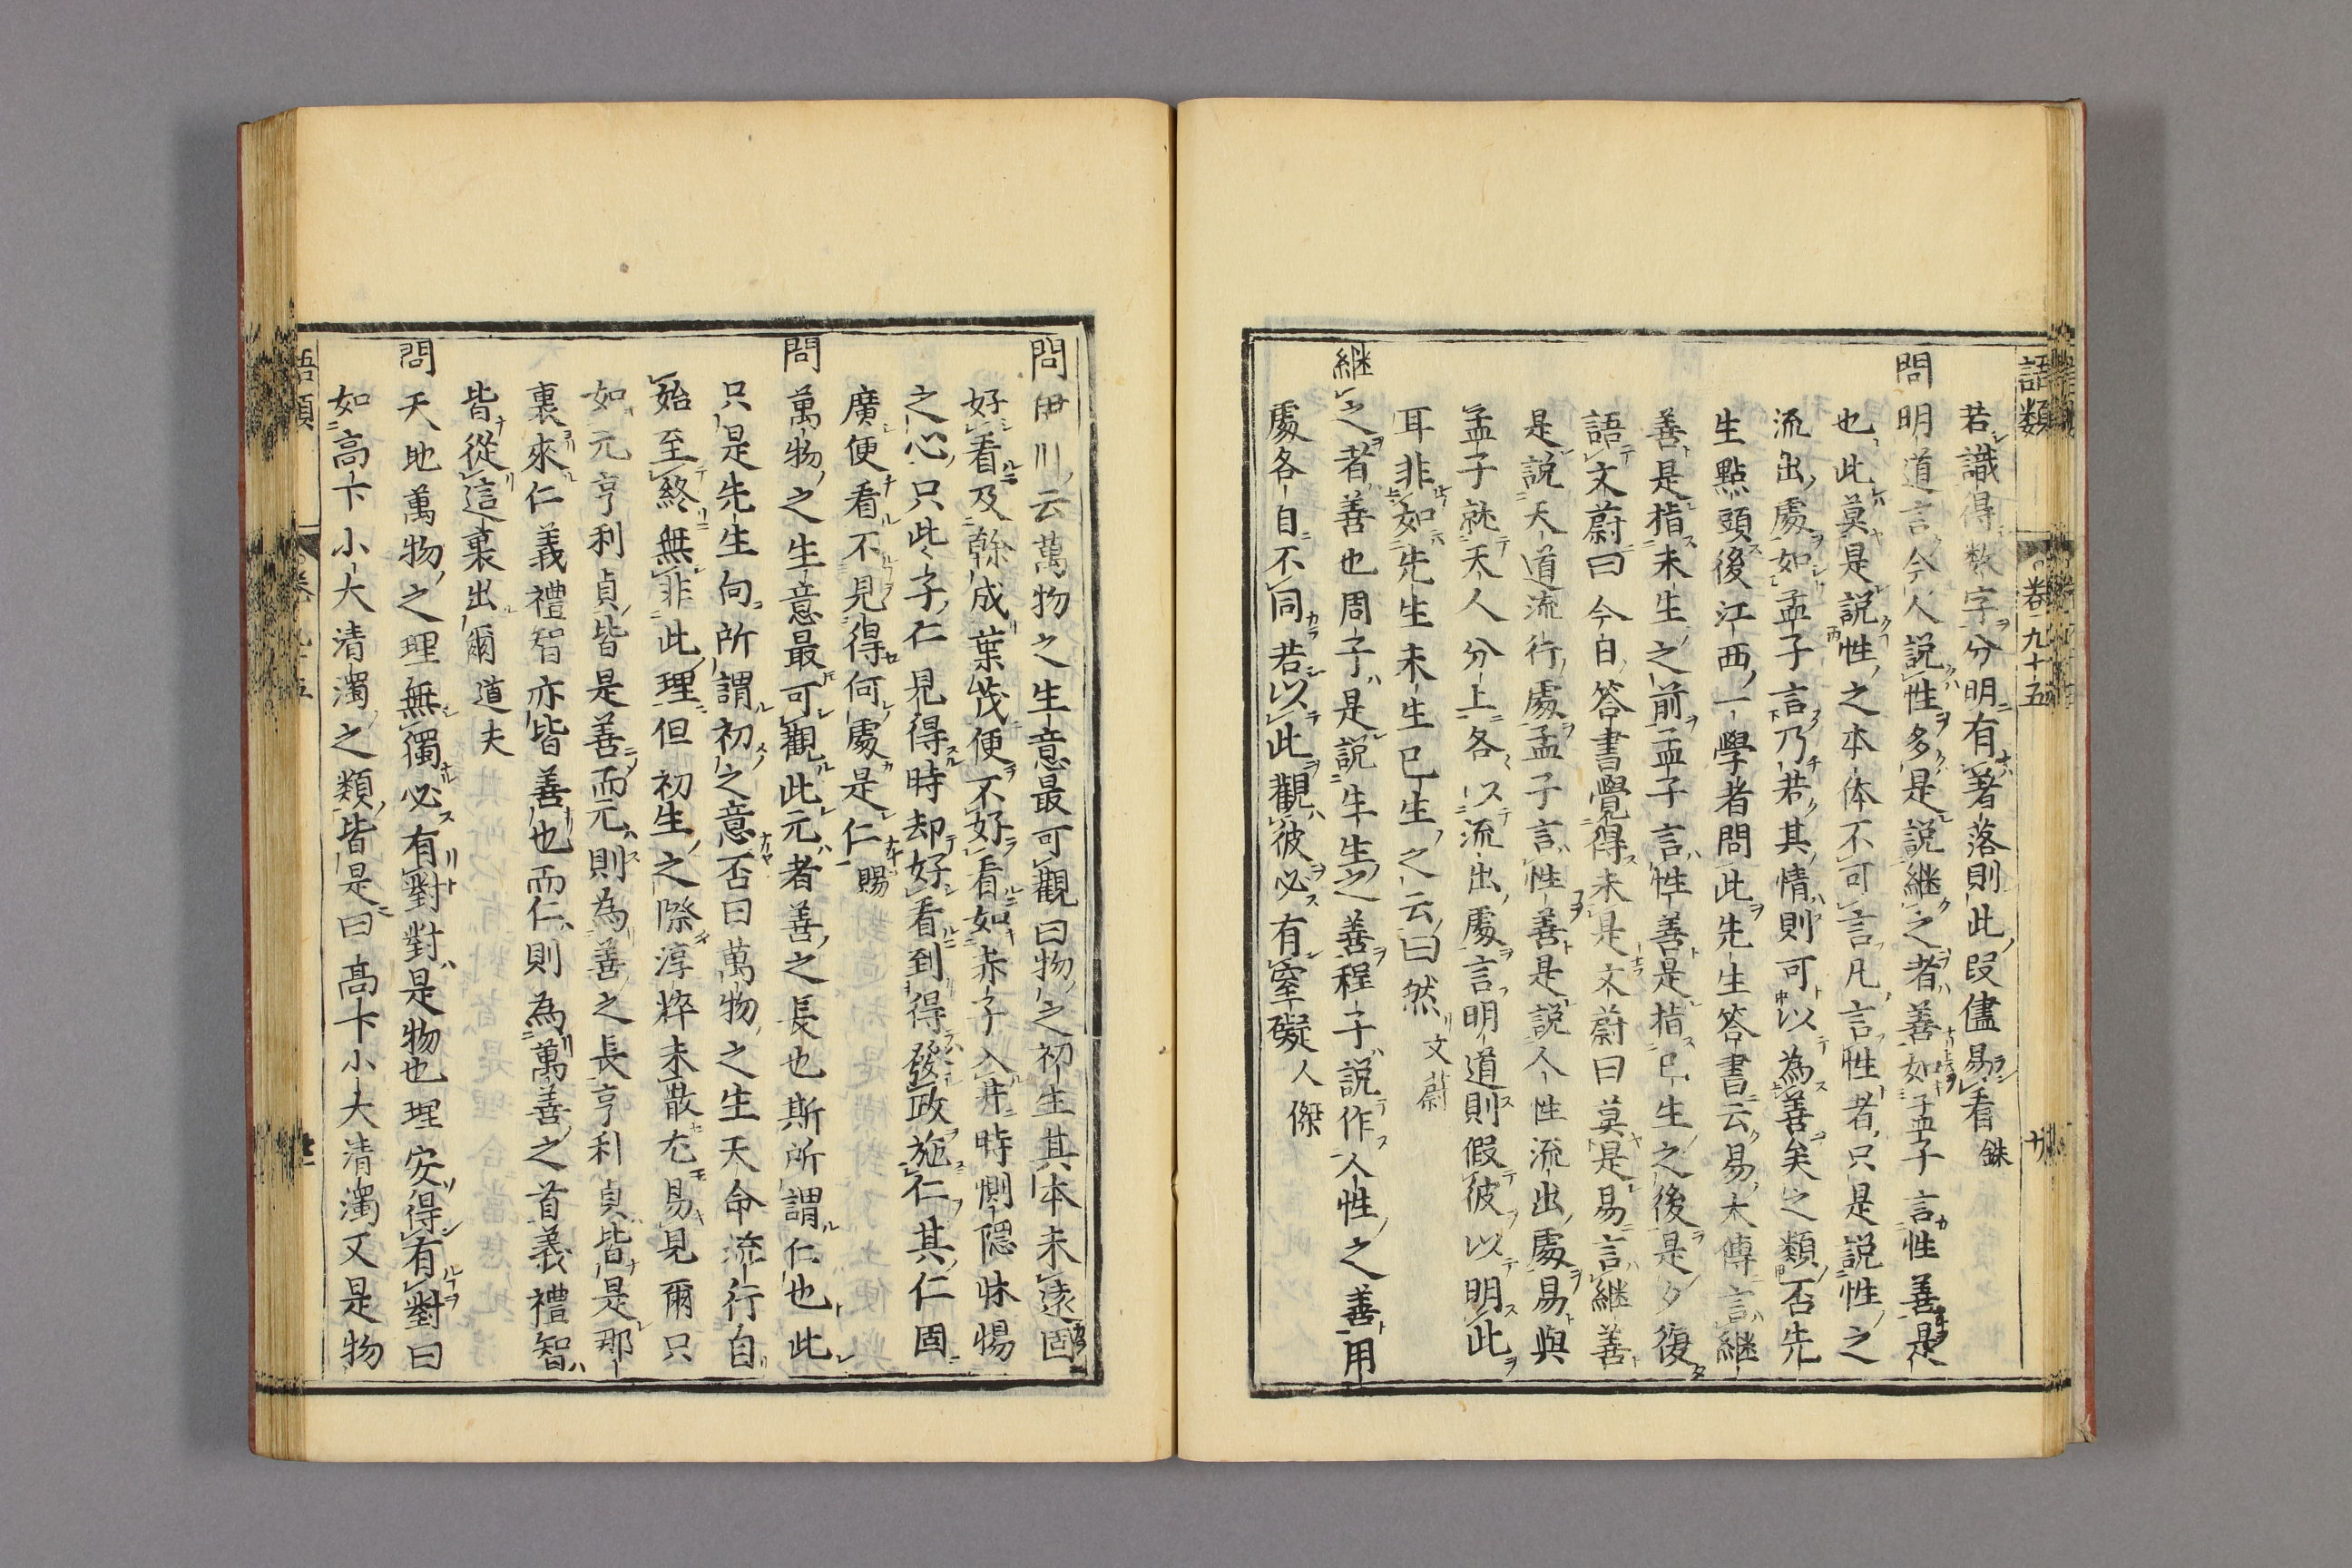 語類
卷九十五
若識得數字分明有著落則此段儘易看 銖
問明道言今人說性多是說継之者善如孟子言性善是
也此莫是說性之本体不可言凡言性者只是說性之
流出處如孟子言乃若其情則可以為善矣之類否先
生點頭後江西一學者問此先生答書云易大傳言継
善是指未生之前孟子言性善是指已生之後是夕復
語文蔚曰今日答書覺得未是文蔚曰莫是易言継善
是說天道流行處孟子言性善是說人性流出處易與
孟子就天人分上各以流出處言明道則假彼以明此
耳非如先生未生已生之云曰然 文蔚
継之者善也周子是說生生之善程子說作人性之善用
處各自不同若以此觀彼必有窒礙 人傑
問伊川云萬物之生意最可觀曰物之初生其本未遠固
好看及幹成葉茂便不好看如赤子入井時惻隱怵惕
之心只此子仁見得時却好看到得發政施仁其仁固
廣便看不見得何處是仁 賜
問萬物之生意最可觀此元者善之長也斯所謂仁也此
只是先生向所謂初之意否曰萬物之生天命流行自
始至終無非此理但初生之際淳粹未散尤易見爾只
如元亨利貞皆是善而元則為善之長亨利貞皆是那
裏來仁義禮智亦皆善也而仁則為萬善之首義禮智
皆從這裏出爾 道夫
問天地萬物之理無獨必有對對是物也理安得有對曰
如高下小大清濁之類皆是曰高下小大清濁又是物
語類